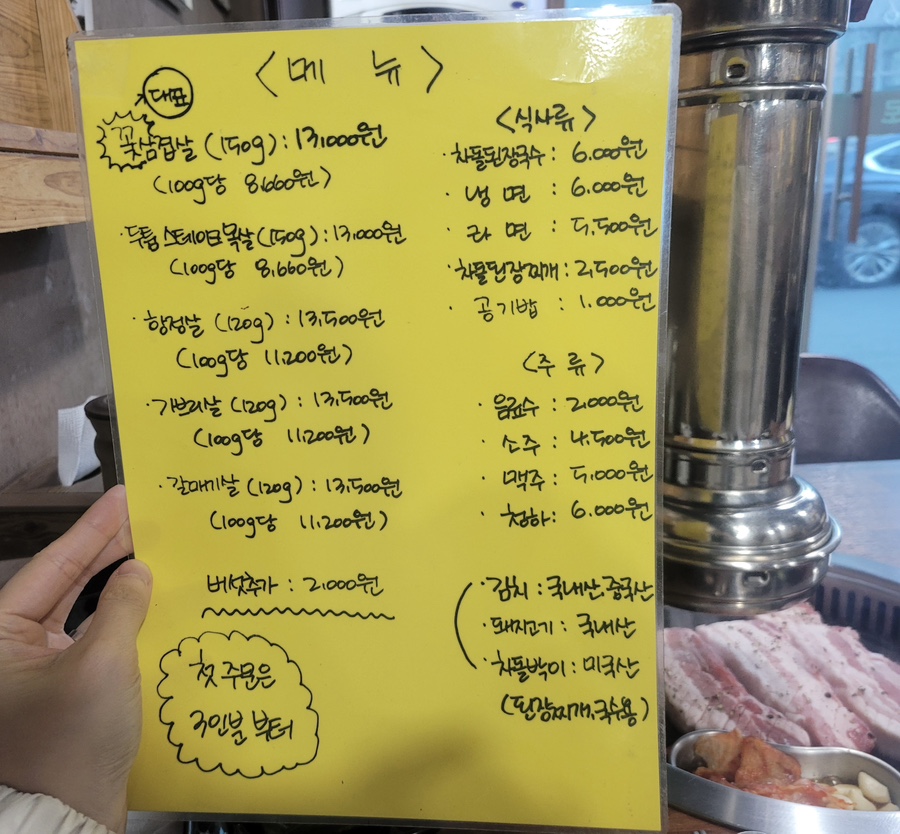 <메 뉴>
대표
꽃삼겹살 (150g) : 13,000원
(100g당 8,660원)
·두툼 스테이크 목살 (150g) : 13,000원
(100g당 8,660원)
·항정살 (120g) : 13,500원
(100g당 11,200원)
·가브리살 (120g) : 13,500원
(100g당 11,200원)
·갈매기살 (120g) : 13,500원
(100g당 11,200원)
버섯추가 : 2,000원
첫 주문은
3인분 부터
<식사류>
·차돌된장국수 : 6.000원
·냉 면 : 6.000원
·라 면 : 5,500원
·차돌된장찌개 : 2,500원
·공기밥 : 1.000원
<주 류>
·음료수 : 2.000원
·소주 : 4,500원
·맥주 : 5.000원
·청하 : 6.000원
·김치 : 국내산,중국산
·돼지고기 : 국내산
·차돌박이 : 미국산
(된장찌개.국수용)